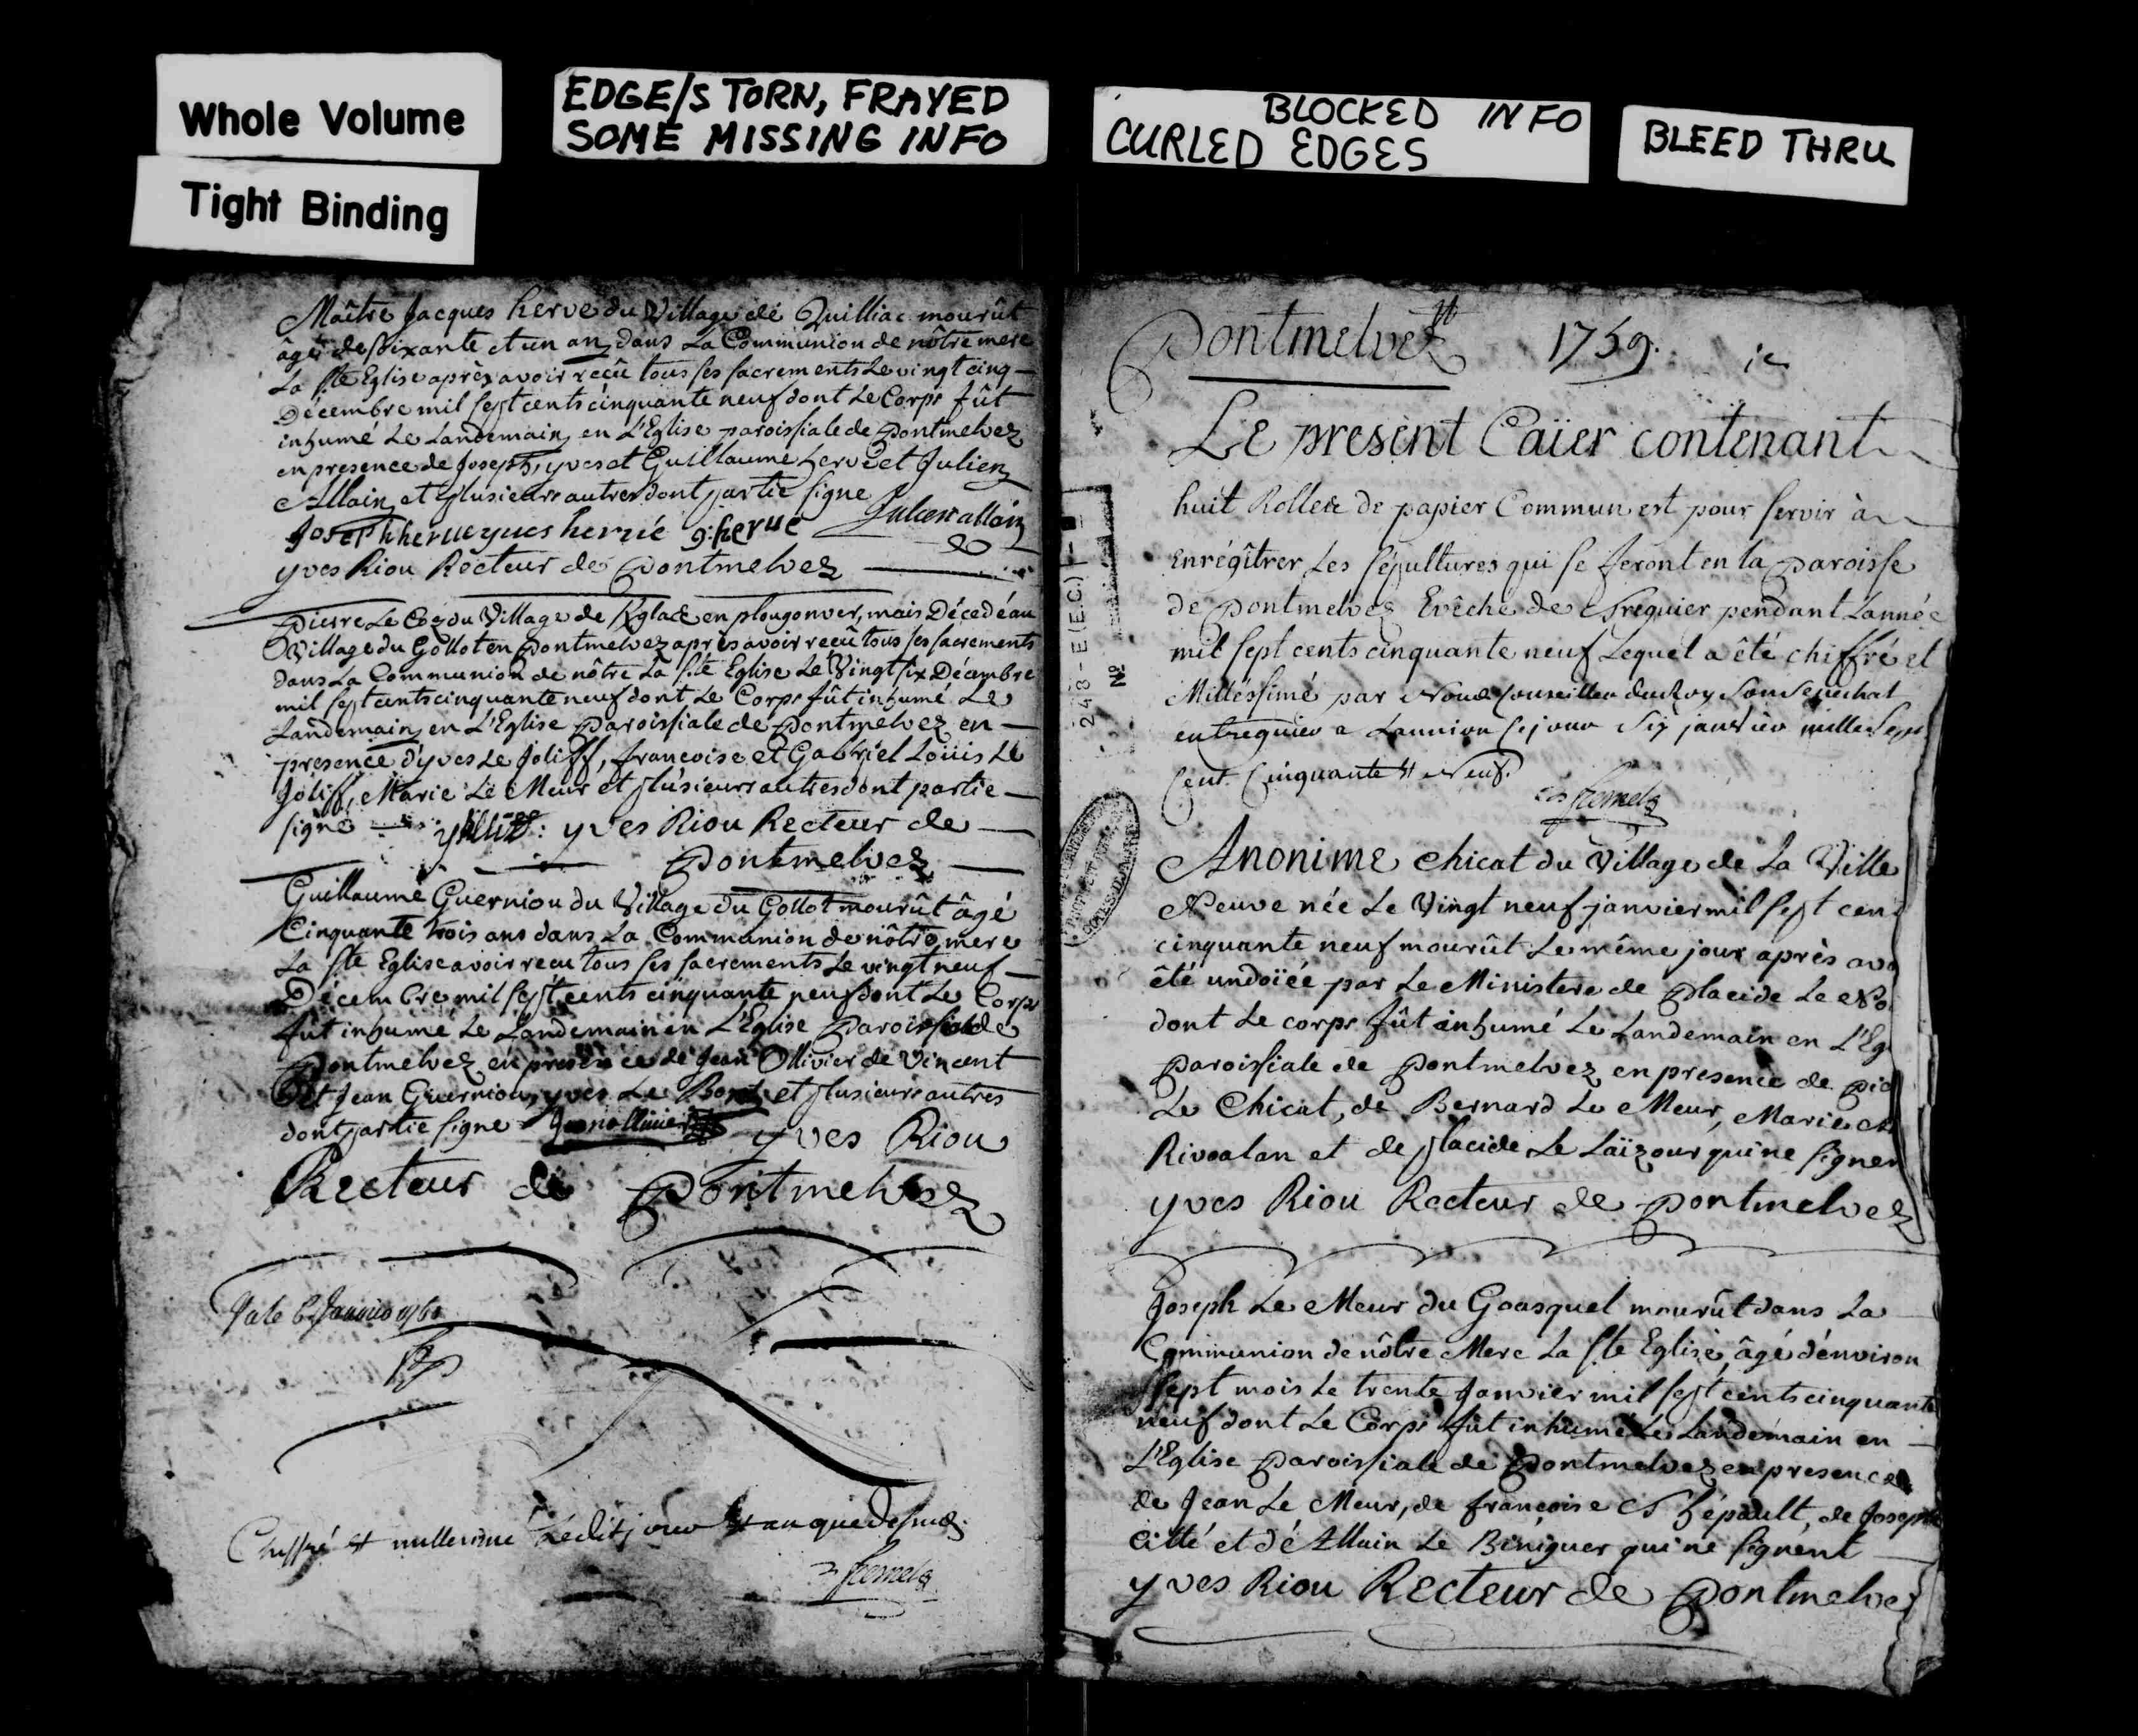 Whole Volume
Tight Binding
EDGE/S TORN, FRAYED
SOME MISSING INFO
BLOCKED INFO
CURLED EDGES
BLEED THRU
Maître Jacques herve du Village de Quilliac mourût
âgé de soixante et un an dans La Communion de nôtre mere
La Ste Eglise après avoir reçû tous ses sacrements Le vingt cinq
Décembre mil sept cents cinquante neuf dont Le Corps fût
inhumé Le Landemain en L'Eglise paroissiale de Pontmelvez
en presence de Joseph, yves et Guillaume hervé et Julien
Allain et plusieurs autres dont partie signe
Joseph herve yves hervé g: herve Julien allain
yves Riou Recteur de Pontmelvez
Pierre Le Coz du Village de en plougonver, mais Décedé au
Village du Gollot en Pontmelvez après avoir reçû tous ses sacrements
dans La Communion de nôtre La Ste Eglise Le Vingt six Décembre
mil sept cents cinquante neuf dont Le Corps fût inhumé Le
Landemain en L'Eglise Paroissiale de Pontmelvez en
presence d'yves Le Joliff, françoise et Gabriel Loüis Le
Joliff, Marie Le Meur et plusieurs autres dont partie
signe yves Riou Recteur de
Pontmelvez
Guillaume Guerniou du Village du Gollot mourût âgé
Cinquante trois ans dans La Communion de nôtre mere
La Ste Eglise avoir recu tous ses sacrements Le vingt neuf
Décembre mil sept cents cinquante neuf dont Le Corps
fut inhumé Le Landemain en L'Eglise Paroissiale de
Pontmelvez en presence de Jean Ollivier de Vincent
Et Jean Guerniou, yves Le et plusieurs autres
dont partie signe Jean ollivier yves Riou
Recteur de Pontmelvez
Chiffré et millesimé Ledit jour et an que dessus
Pontmelvez 1759. 1e
Le present Caïer contenant
huit Rolles de papier Commun est pour servir à
Enrégîtrer Les sépultures qui se feront en la Paroisse
de Pontmelvez Evêché de Treguier pendant Lannée
mil sept cents cinquante neuf Lequel a êté chiffré et
Millessimé par Nous Conseiller du Roy Son Senechal
en treguier a Lannion ce jour Six janvier mille Sept
Cent Cinquante et Neuf.
Anonime Chicat du Village de La Ville
Neuve née Le Vingt neuf janvier mil sept cent
cinquante neuf mourût Le même jour après avo
êté undoïée par Le Ministere de Placide Le
dont Le corps fût inhumé Le Landemain en L'Eg
Paroissiale de Pontmelvez en presence de Pie
Le Chicat, de Bernard Le Meur, Marie
Rivoalan et de placide Le Laïzour qui ne signen
yves Riou Recteur de Pontmelvez
Joseph Le Meur du Goasquel mourût dans La
Communion de nôtre Mere La Ste Eglise, âgé d'environ
sept mois Le trente Janvier mil sept cents cinquante
neuf dont Le Corps fût inhumé Le Landemain en
L'Eglise Paroissiale de Pontmelvez en presence
de Jean Le Meur, de françoise Thépault, de Joseph
Citté et de Allain Le Biniguer qui ne signent
yves Riou Recteur de Pontmelvez